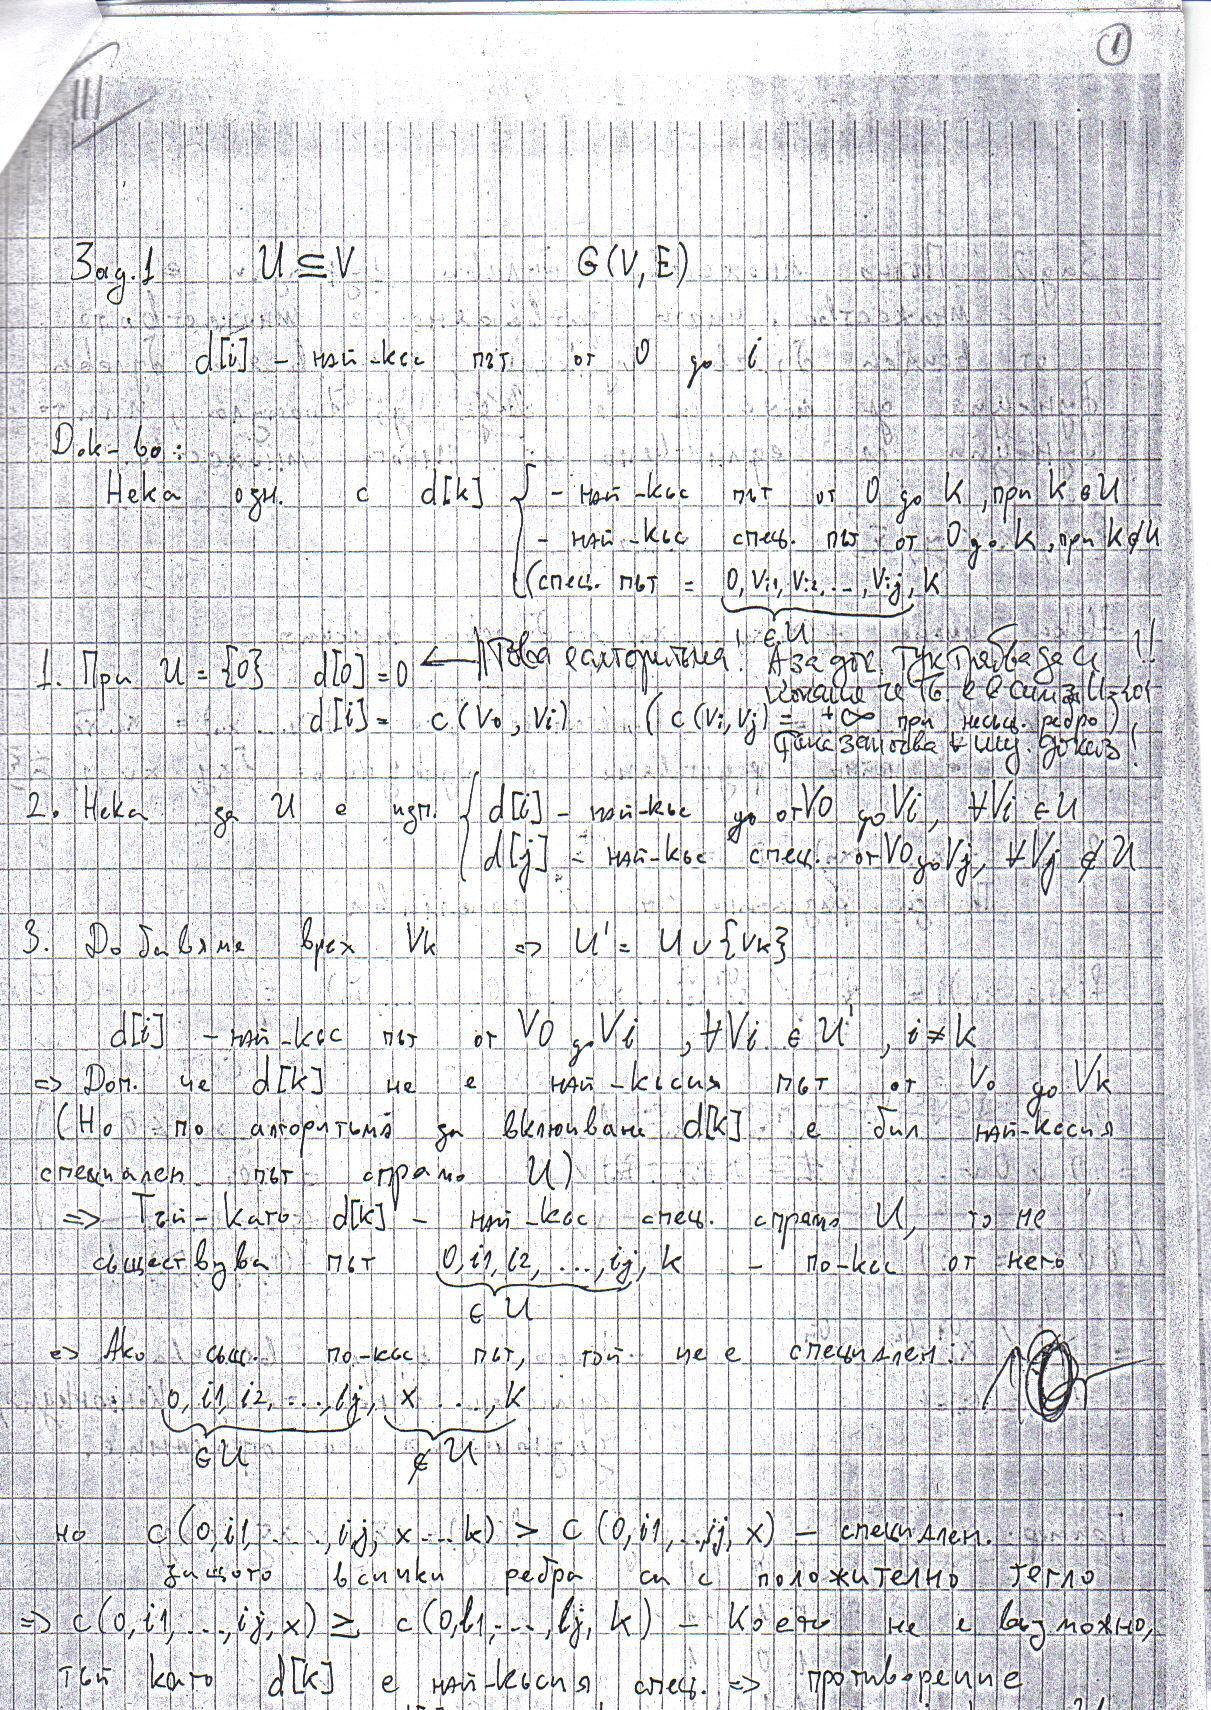 1
III
Зад.1 U ⊆ V G(V, E)
d[i] - най-къс път от 0 до i
Док-во:
Нека озн. с d[k] { - най-къс път от 0 до K, при K ∈ U
- най-къс спец. път от 0 до K, при K ∉ U
(спец. път = 0, Vi1, Vi2, ..., Vij, K
∈ U
1. При U = {0} d[0] = 0 ← Това е алгоритъма! А за док. тук трябва да се !!
покаже че Тв. е в сила за U={0}
d[i] = c(V0, Vi) (c(Vi, Vj) = +∞ при несъщ. ребро)
Така започва инд. доказ!
2. Нека за U е изп. { d[i] - най-къс до от V0 до Vi, ∀Vi ∈ U
d[j] - най-къс спец. от V0 до Vj, ∀Vj ∉ U
3. Добавяме връх Vk => U' = U ∪ {Vk}
d[i] - най-къс път от V0 до Vi, ∀Vi ∈ U', i ≠ k
=> Доп. че d[k] не е най-късия път от V0 до Vk
(Но по алгоритъма за включване d[k] е бил най-късия
специален път спрямо U)
=> Тъй-като d[k] - най-къс спец. спрямо U, то не
съществува път 0, i1, i2, ..., ij, k - по-къс от него
∈ U
=> Ако същ. по-къс път, той не е специален:
0, i1, i2, ..., ij, x ..., k
∈ U ∉ U
но c(0, i1, ..., ij, x ... k) > c(0, i1, ..., ij, x) - специален.
защото всички ребра са с положително тегло
=> c(0, i1, ..., ij, x) ≥ c(0, l1, ..., lj, k) - Което не е възможно,
тъй като d[k] е най-късия спец. => противоречие